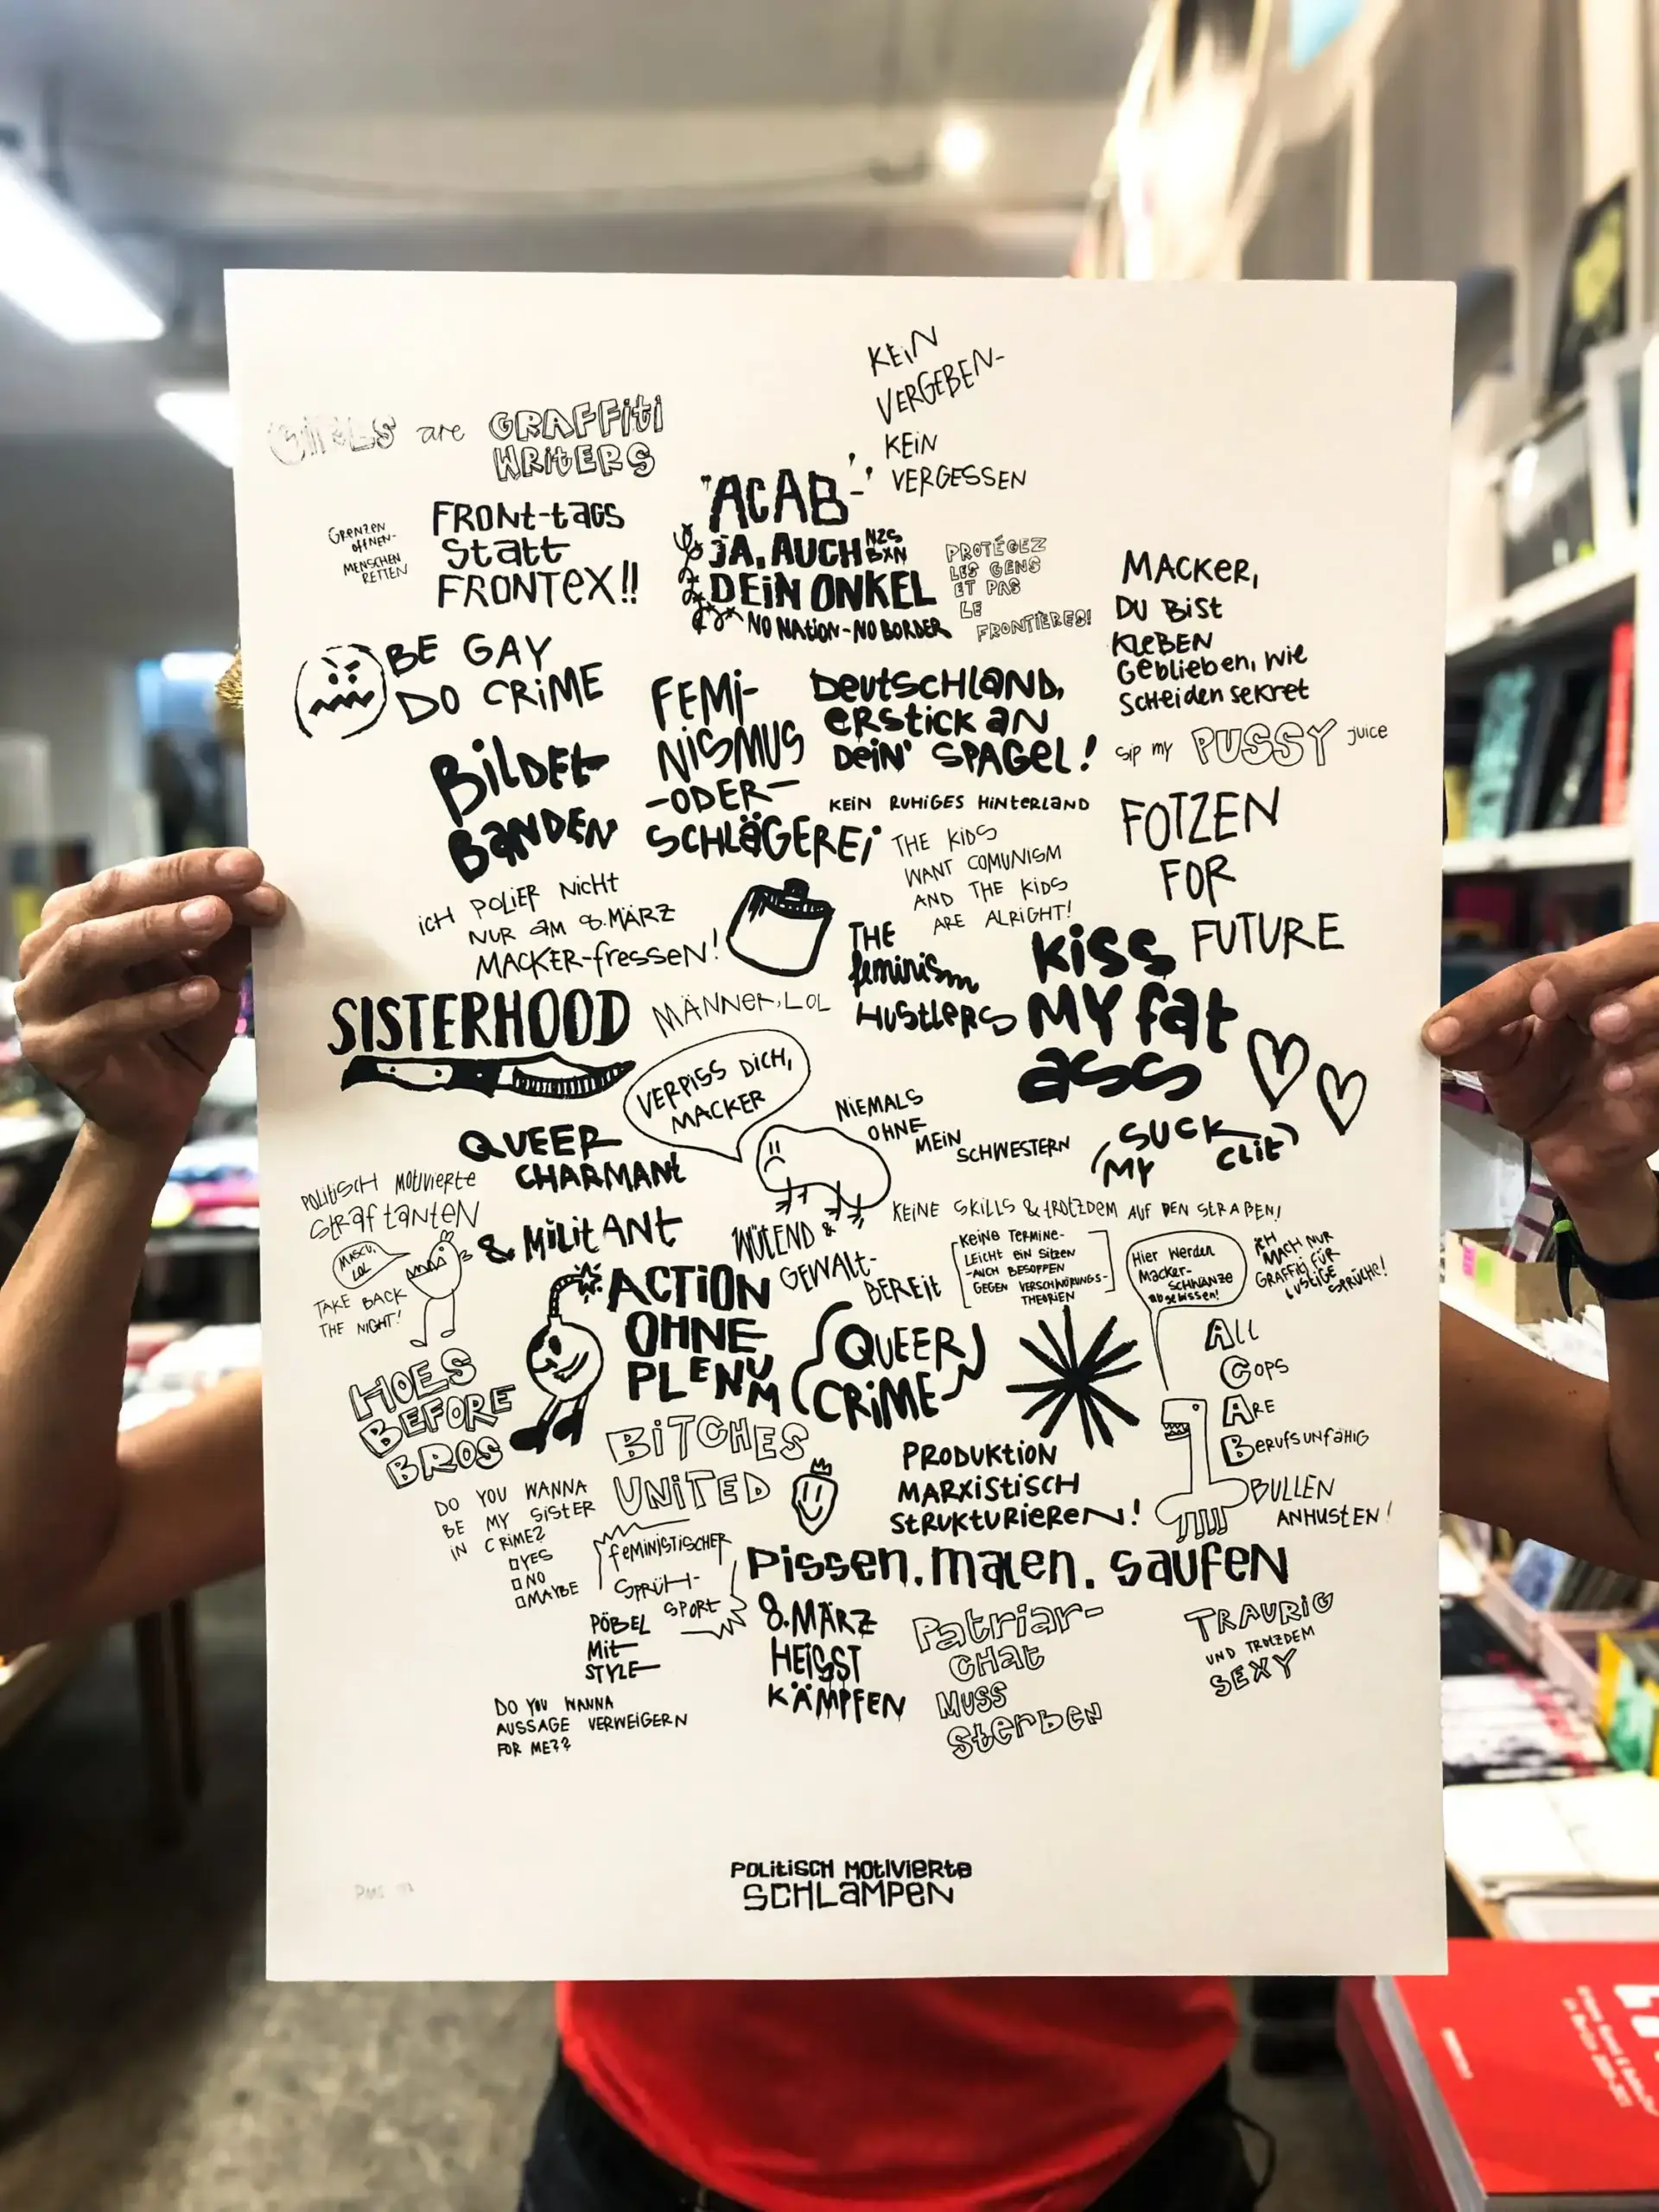 KEIN
VERGEBEN-
KEIN
VERGESSEN
GIRLS are GRAFFITI
WRITERS
GRENZEN
ÖFFNEN-
MENSCHEN
RETTEN
FRONT-TAGS
STATT
FRONTEX!!
"ACAB-"
JA, AUCH
NZS
BXN
DEIN ONKEL
NO NATION-NO BORDER
PROTÉGEZ
LES GENS
ET PAS
LE
FRONTIÈRES!
MACKER,
DU BIST
KLEBEN
GEBLIEBEN, WIE
SCHEIDENSEKRET
BE GAY
DO CRIME
FEMI-
NISMUS
-ODER-
SCHLÄGEREI
DEUTSCHLAND,
ERSTICK AN
DEIN' SPAGEL!
sip my PUSSY juice
BILDET
BANDEN
KEIN RUHIGES HINTERLAND
THE KIDS
WANT COMUNISM
AND THE KIDS
ARE ALRIGHT!
FOTZEN
FOR
FUTURE
ICH POLIER NICHT
NUR AM 8.MÄRZ
MACKER-fressen!
THE
feminism
HUSTLERS
KISS
MY fat
ass
SISTERHOOD
MÄNNER, LOL
VERPISS DICH,
MACKER
NIEMALS
OHNE
MEIN
SCHWESTERN
(SUCK
MY CLIT)
QUEER
CHARMANT
& MILITANT
POLITISCH MOTIVIERTE
STRAFTANTEN
MASCU,
LOL
TAKE BACK
THE NIGHT!
WÜTEND &
GEWALT-
BEREIT
KEINE SKILLS & TROTZDEM AUF DEN STRAßEN!
KEINE TERMINE-
LEICHT EIN SITZEN
-AUCH BESOFFEN
GEGEN VERSCHWÖRUNGS-
THEORIEN
Hier werden
Macker-
SCHWÄNZE
abgebissen!
ICH
MACH NUR
GRAFFITI FÜR
LUSTIGE
SPRÜCHE!
ACTION
OHNE
PLENUM
QUEER
CRIME
All
Cops
Are
Berufsunfähig
BULLEN
ANHUSTEN!
HOES
BEFORE
BROS
BITCHES
UNITED
PRODUKTION
MARXISTISCH
STRUKTURIEREN!
DO YOU WANNA
BE MY SISTER
IN CRIME?
YES
NO
MAYBE
feMINISTISCHER
SPRÜH-
SPORT
PISSEN. MALEN. SAUFEN
PÖBEL
MIT
STYLE
8.MÄRZ
HEISST
KÄMPFEN
PATRIAR-
CHAT
MUSS
STERBEN
TRAURIG
UND TROTZDEM
SEXY
DO YOU WANNA
AUSSAGE VERWEIGERN
FOR ME??
POLITISCH MOTIVIERTE
SCHLAMPEN